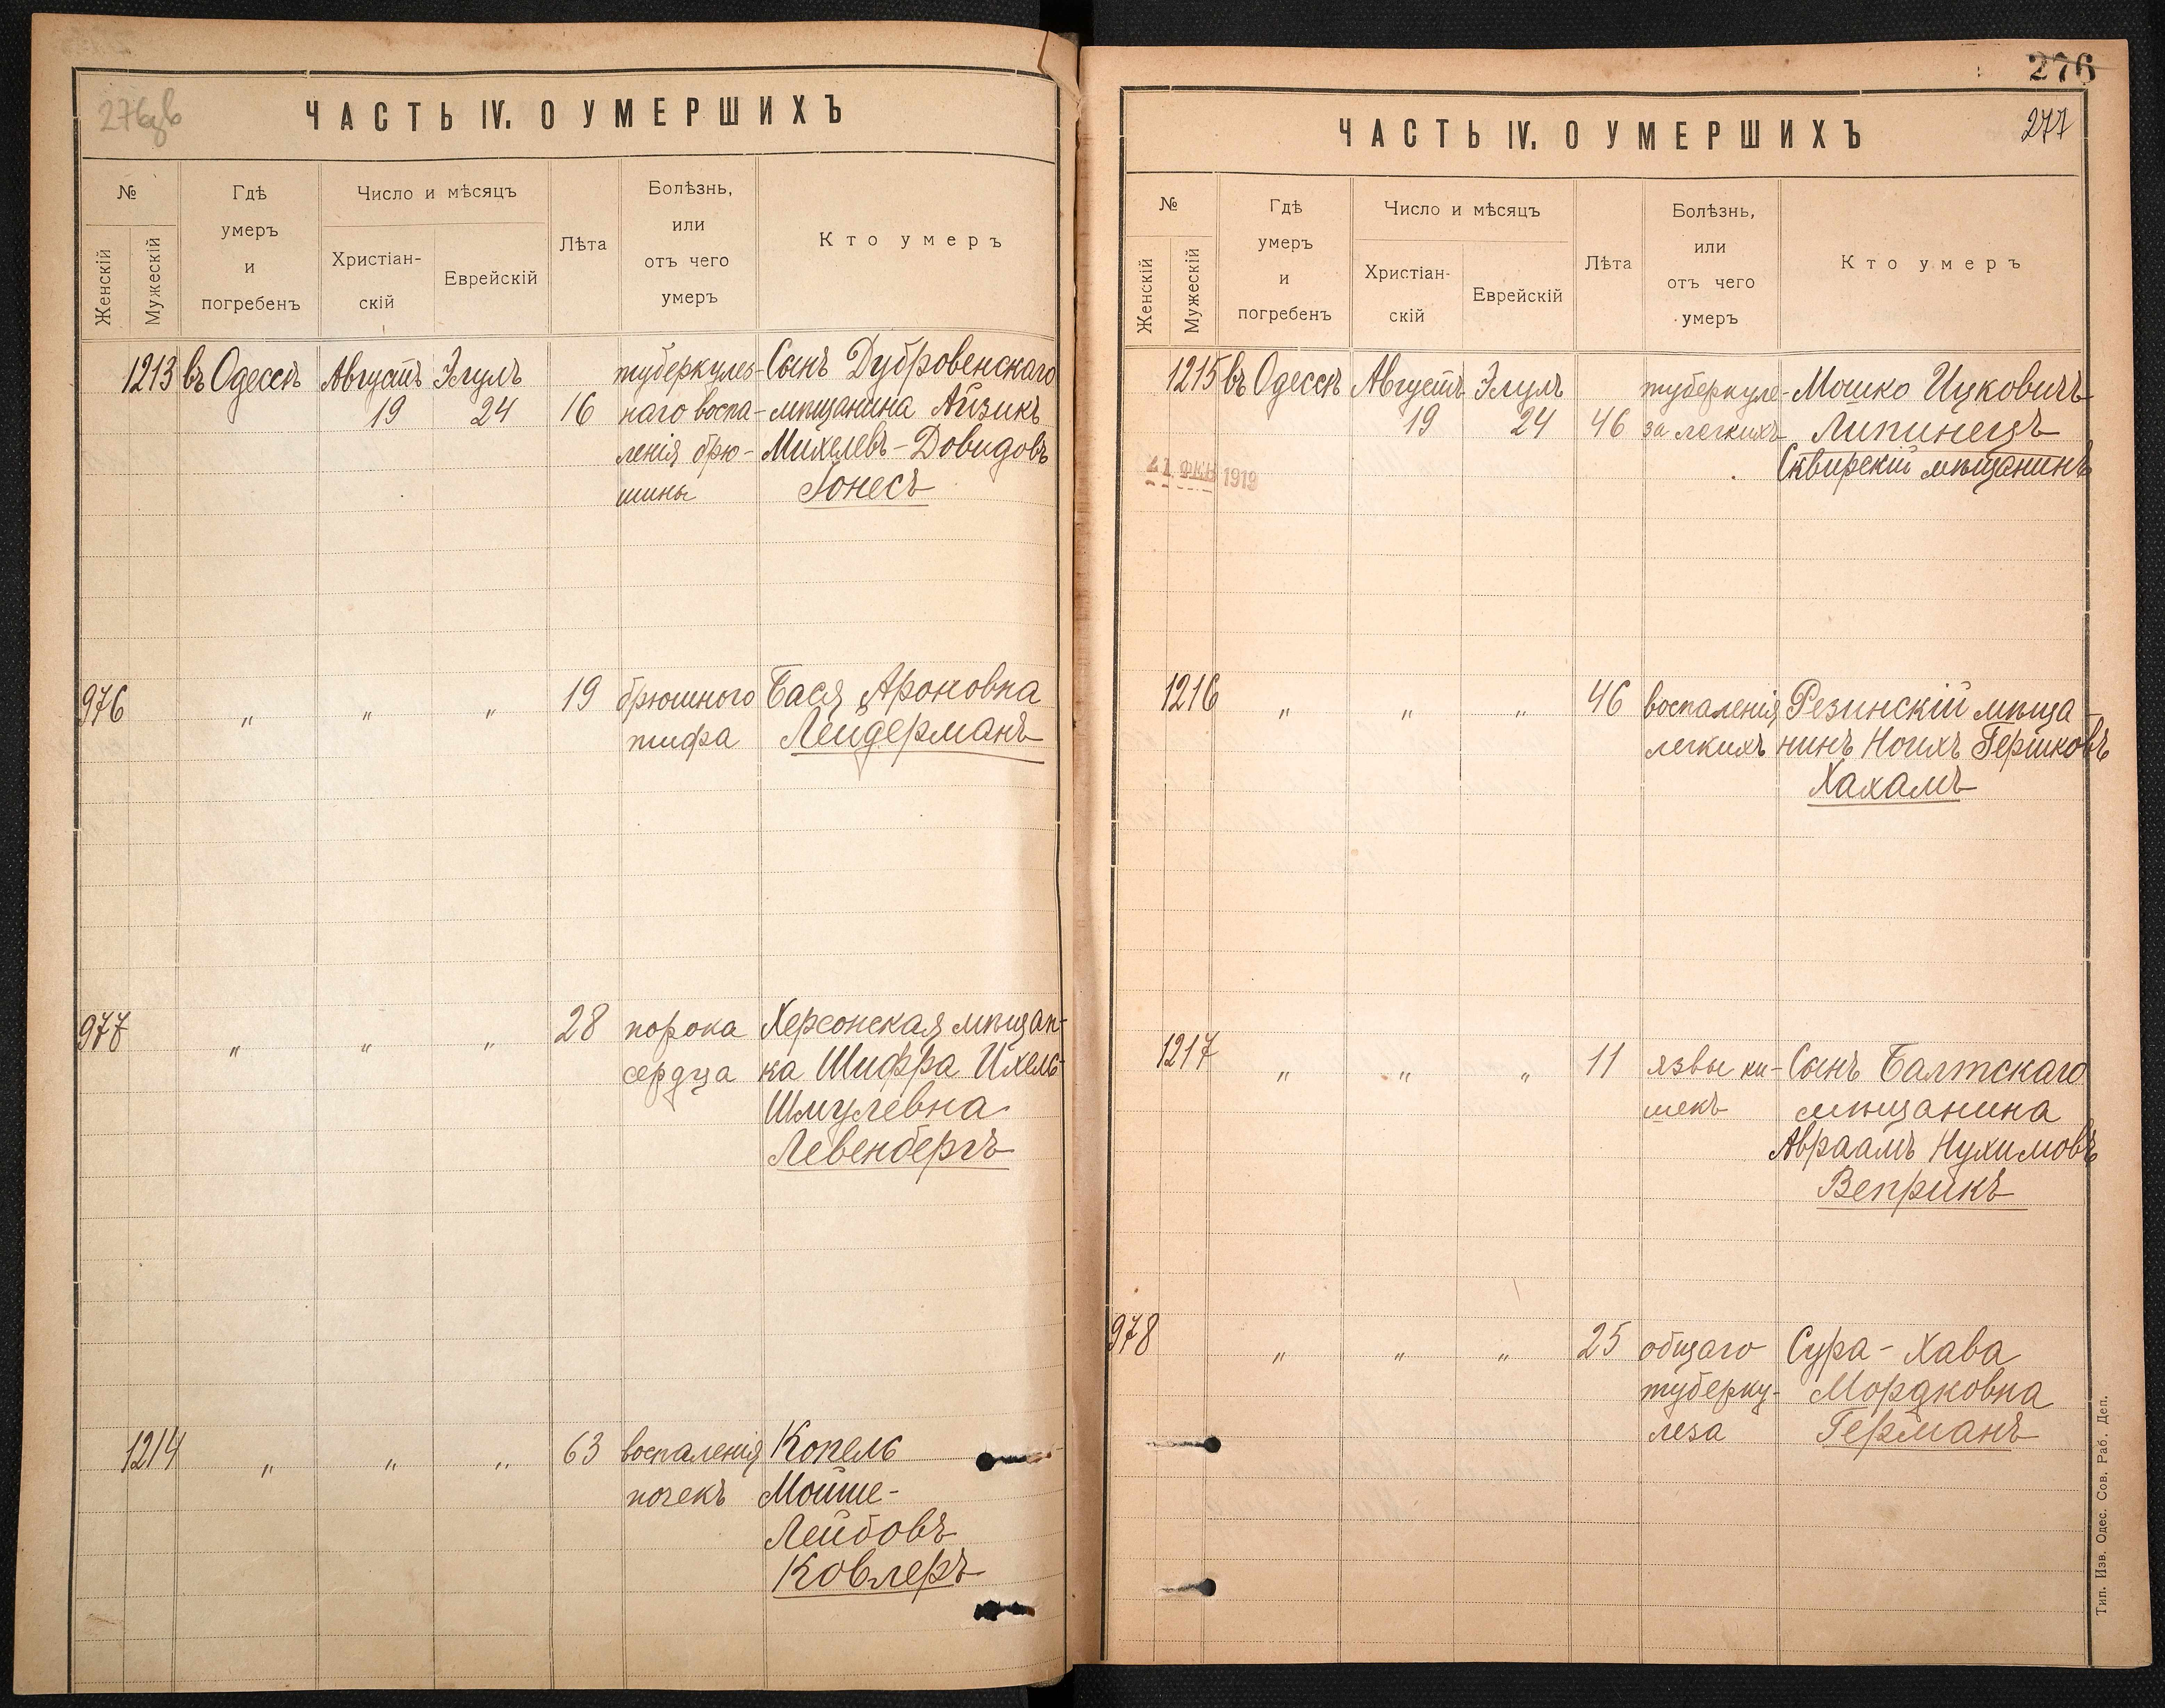 276
276 зв
ЧАСТЬ IV. О УМЕРШИХЪ
№
Женскій
Мужескій
Гдѣ
умеръ
и
погребенъ
Число и мѣсяцъ
Христіан-
скій
Еврейскій
Лѣта
Болѣзнь,
или
отъ чего
умеръ
Кто умеръ
1213 въ Одессѣ Августъ Элулъ туберкулез- Сынъ Дубровенскаго
19 24 16 наго воспа- мѣщанина Айзикъ
ленія брю- Михелевъ-Довидовъ
шины Гонесъ
976 " " " 19 брюшного Бася Ароновна
тифа Лейдерманъ
977 " " " 28 порока Херсонская мѣщан-
сердца ка Шифра Ихель-
Шмулевна
Левенбергъ
1214 " " " 63 воспаленія Копель
почекъ Мойше-
Лейбовъ
Ковлеръ
277
ЧАСТЬ IV. О УМЕРШИХЪ
№
Женскій
Мужескій
Гдѣ
умеръ
и
погребенъ
Число и мѣсяцъ
Христіан-
скій
Еврейскій
Лѣта
Болѣзнь,
или
отъ чего
умеръ
Кто умеръ
1215 въ Одессѣ Августъ Элулъ туберкуле- Мошко Ицковичъ
19 24 46 за легкихъ Липинецъ
Сквирскій мѣщанинъ
21 ФЕВ 1919
1216 " " " 46 воспаленія Резинскій мѣща-
легкихъ нинъ Ноихъ Гершковъ
Хахамъ
1217 " " " 11 язвы ки- Сынъ Балтскаго
шекъ мѣщанина
Авраамъ Нухимовъ
Веприкъ
978 " " " 25 общаго Сура-Хава
туберку- Мордковна
леза Германъ
Тип. Изв. Одес. Сов. Раб. Деп.